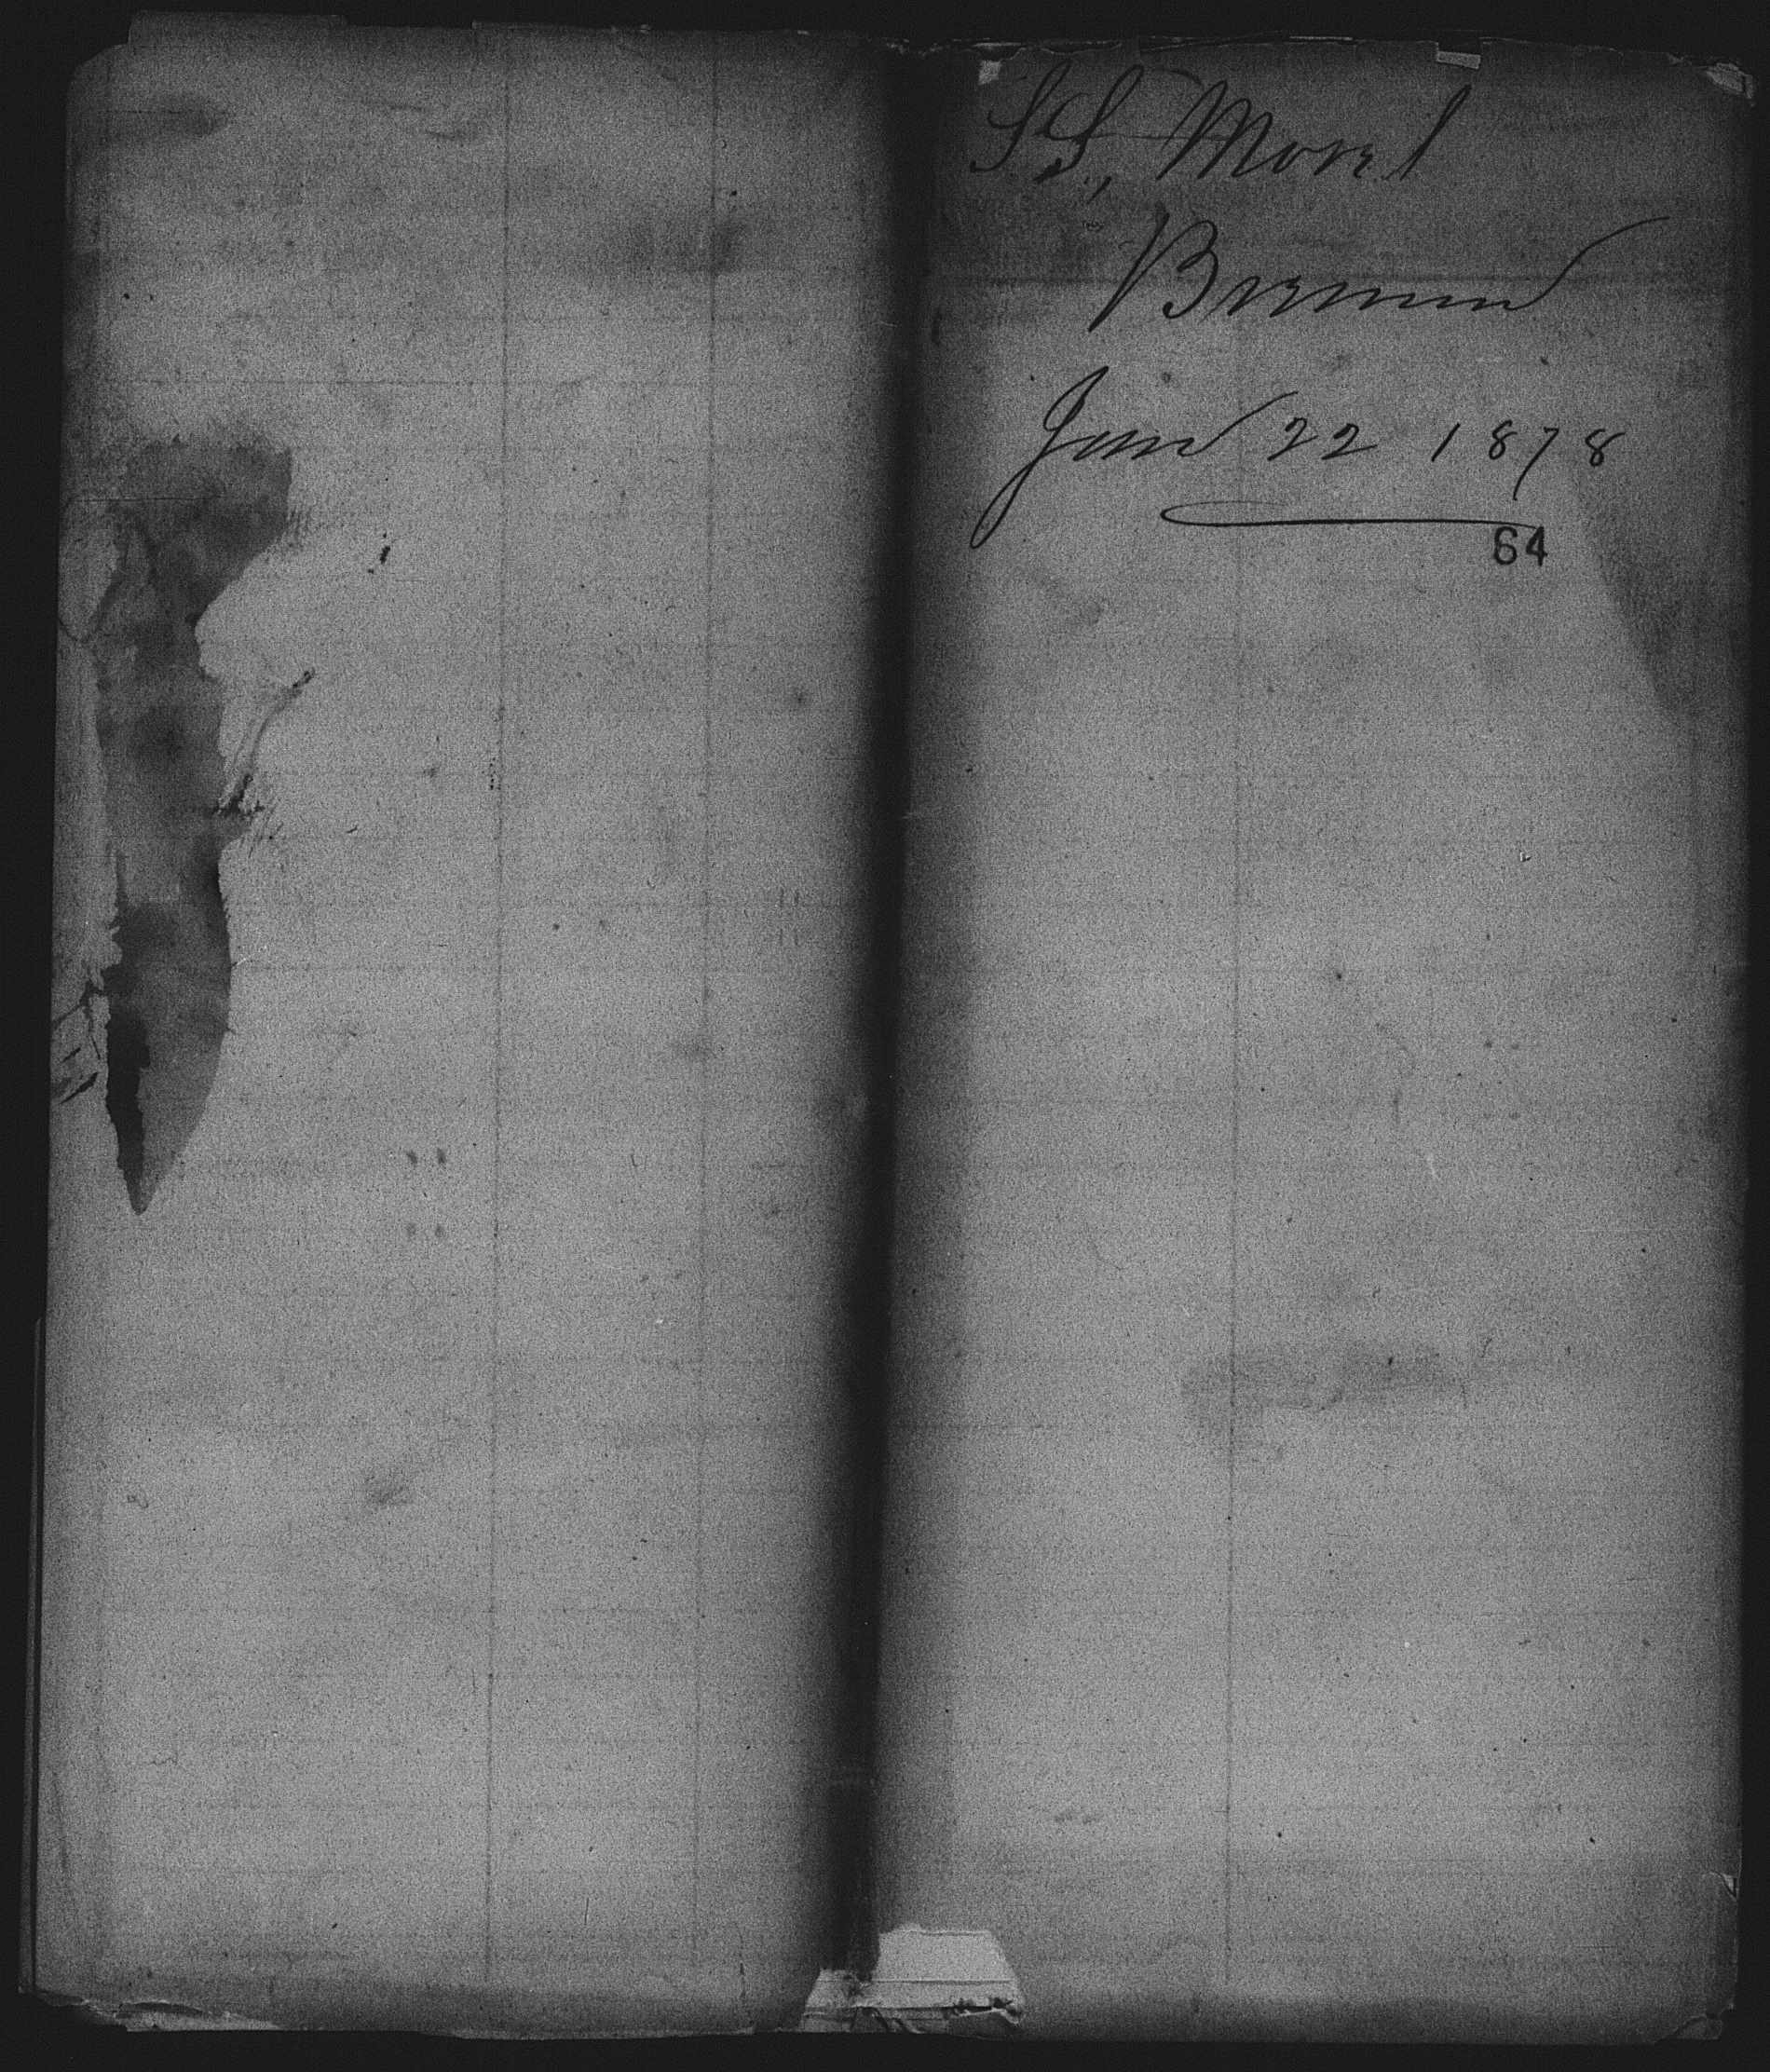 S.S. Mosel
Bremen
Jan 22 1878
64